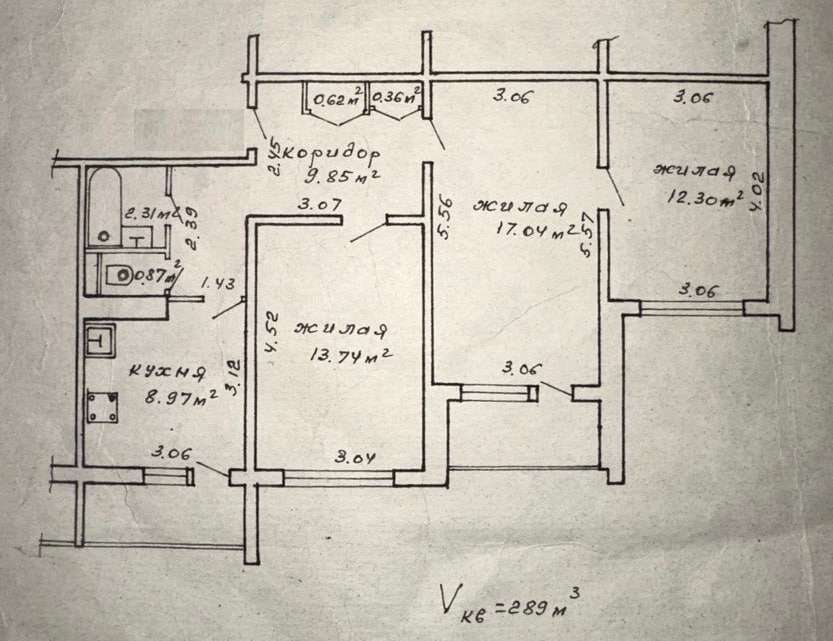 0.62м²
0.36м²
3.06
3.06
2.45
коридор
9.85м²
жилая
12.30м²
4.02
2.31м²
2.39
3.07
5.56
жилая
17.04м²
5.57
0.87м²
1.43
3.06
жилая
13.74м²
4.52
кухня
8.97м²
3.12
3.06
3.06
3.04
Vкв=289м³